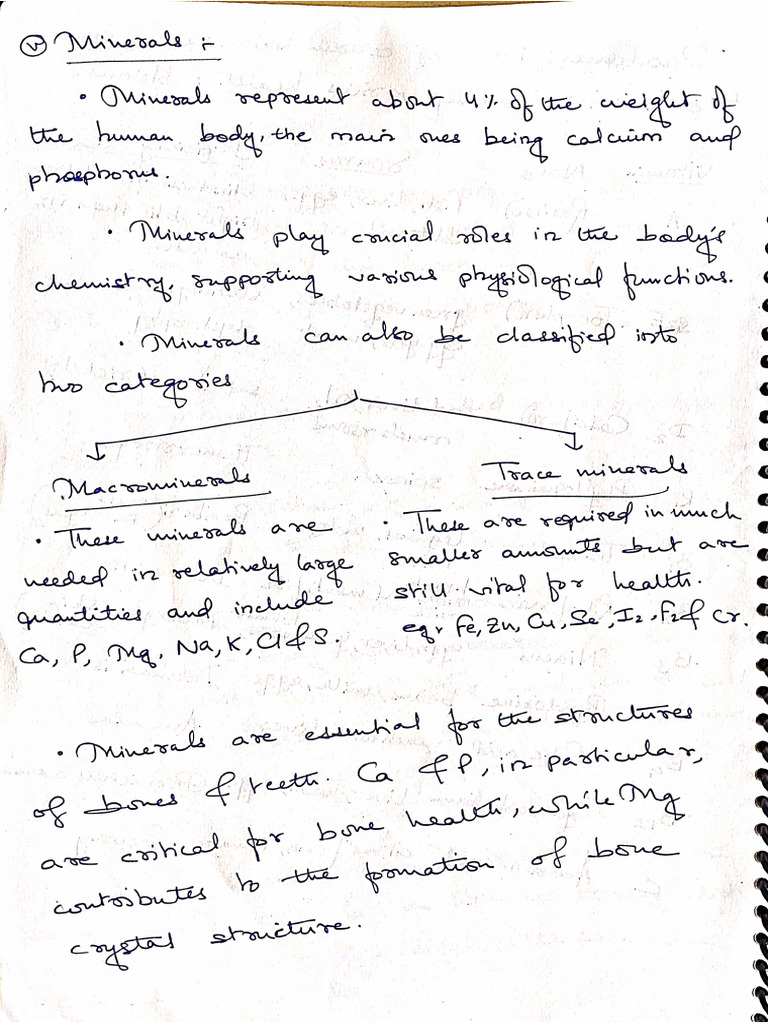 (v) Minerals :-
• Minerals represent about 4% of the weight of
the human body, the main ones being calcium and
phosphorus.
• Minerals play crucial roles in the body's
chemistry, supporting various physiological functions.
• Minerals can also be classified into
two categories
Macrominerals
• These minerals are
needed in relatively large
quantities and include
Ca, P, Mg, Na, K, Cl & S.
Trace minerals
• These are required in much
smaller amounts but are
still vital for health.
eg. Fe, Zn, Cu, Se, I2, F2 & Cr.
• Minerals are essential for the structures
of bones & teeth. Ca & P, in particular,
are critical for bone health, while Mg
contributes to the formation of bone
crystal structure.